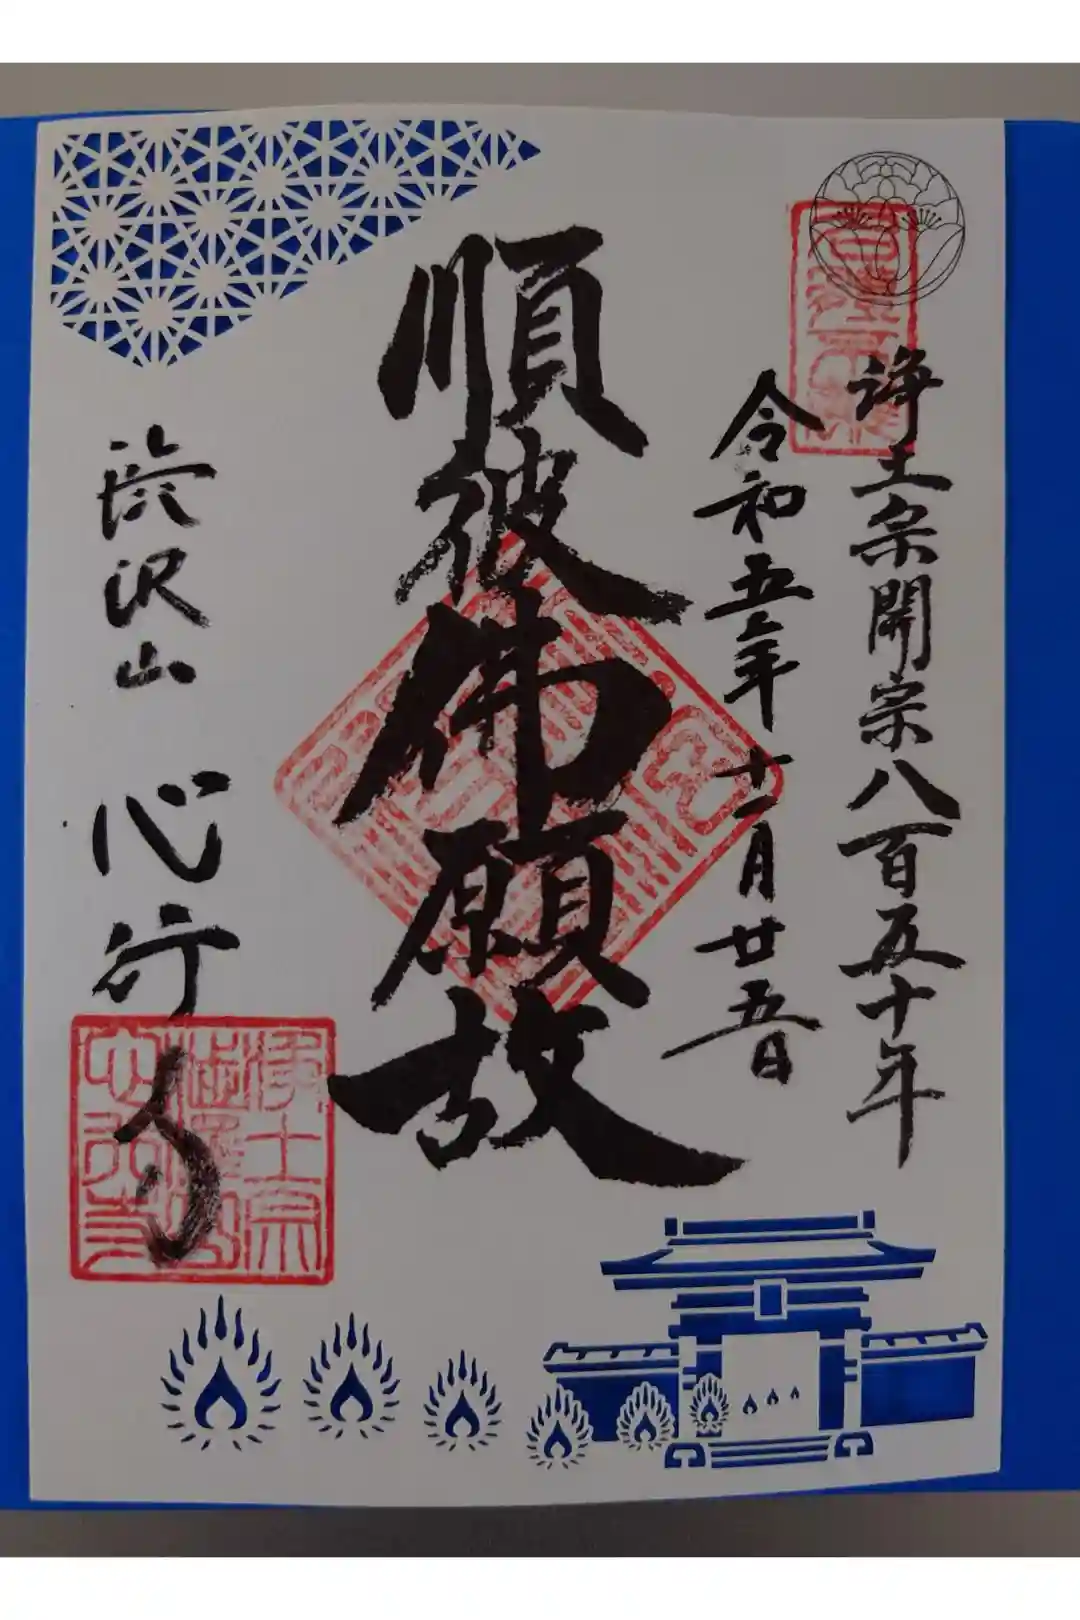 浄土宗開宗八百五十年
令和五年十一月廿五日
順彼佛願故
渋沢山
心行寺
浄土宗